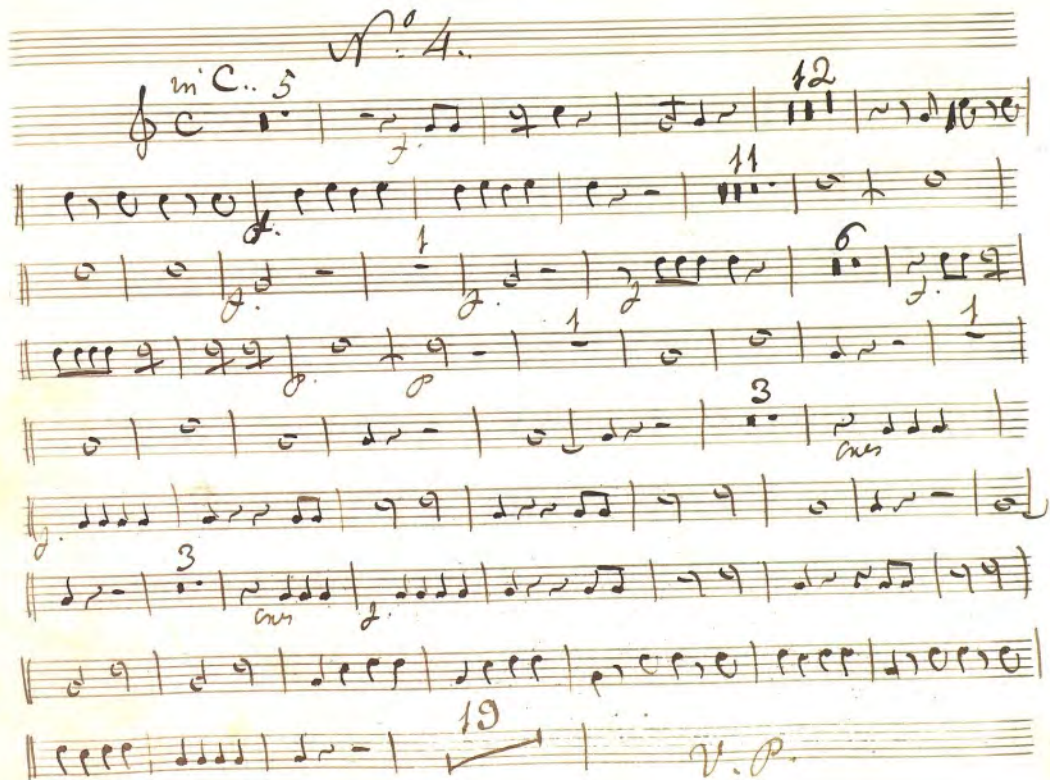 Nº 4.
in C.. 5 12
f.
11
f.
1 6
f. f. f f.
1 1
p. p
3
cres
f.
3
cres f.
19
V. P.